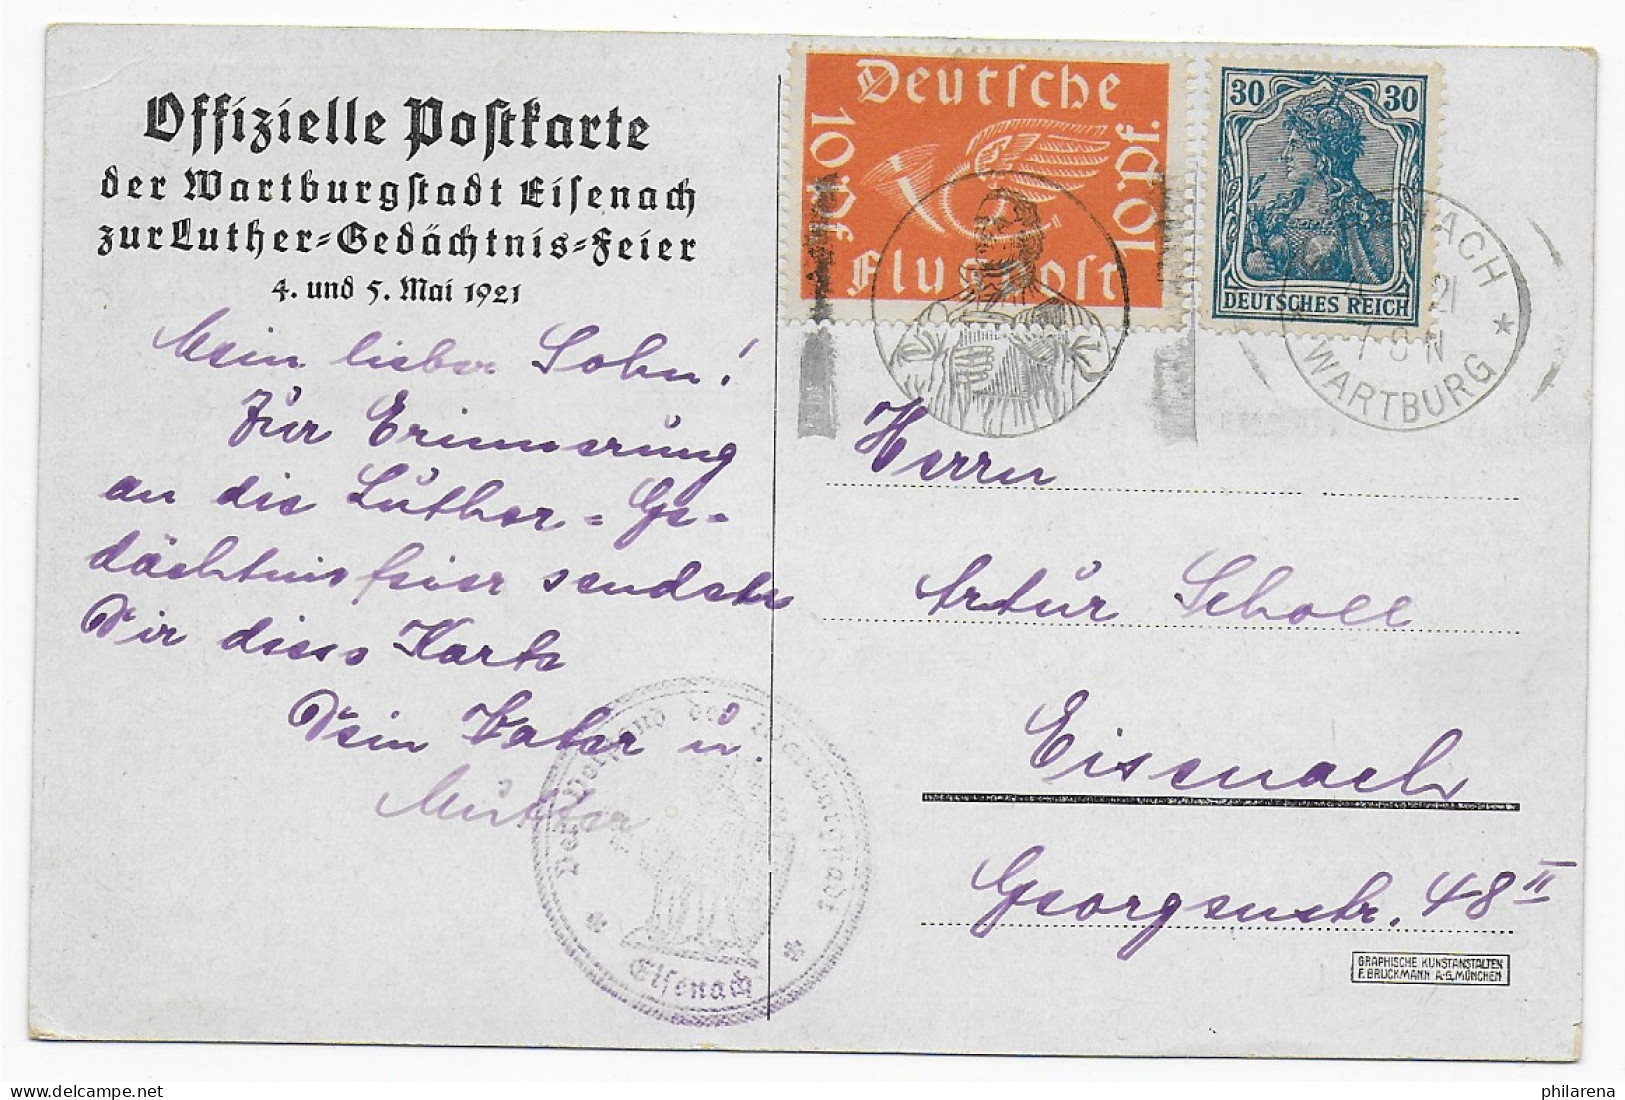 Offizielle Postkarte
der Wartburgstadt Eisenach
zur Luther-Gedächtnis-Feier
4. und 5. Mai 1921
Mein lieber Sohn!
Zur Erinnerung
an die Luther-Ge-
dächtnisfeier sendete
Dir diese Karte
Dein Vater u.
Mutter
Deutsche
10 Pf.
10 Pf.
Flugpost
30 30
DEUTSCHES REICH
21
7 8 N
* WARTBURG
Herrn
Artur Scholl
Eisenach
Georgenstr. 48 II
Eisenach
GRAPHISCHE KUNSTANSTALTEN
F. BRUCKMANN A-G. MÜNCHEN
philarena